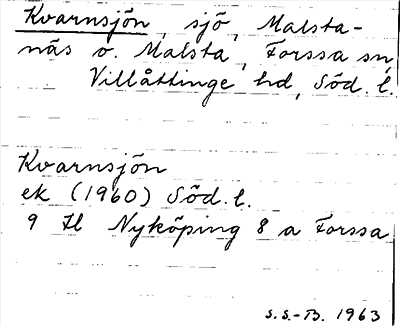 Kvarnsjön, sjö, Malsta-
näs o. Malsta, Forssa sn,
Villåttinge hd, Söd. l.
Kvarnsjön
ek (1960) Söd. l.
9 H Nyköping 8 a Forssa
S.S.-B. 1963